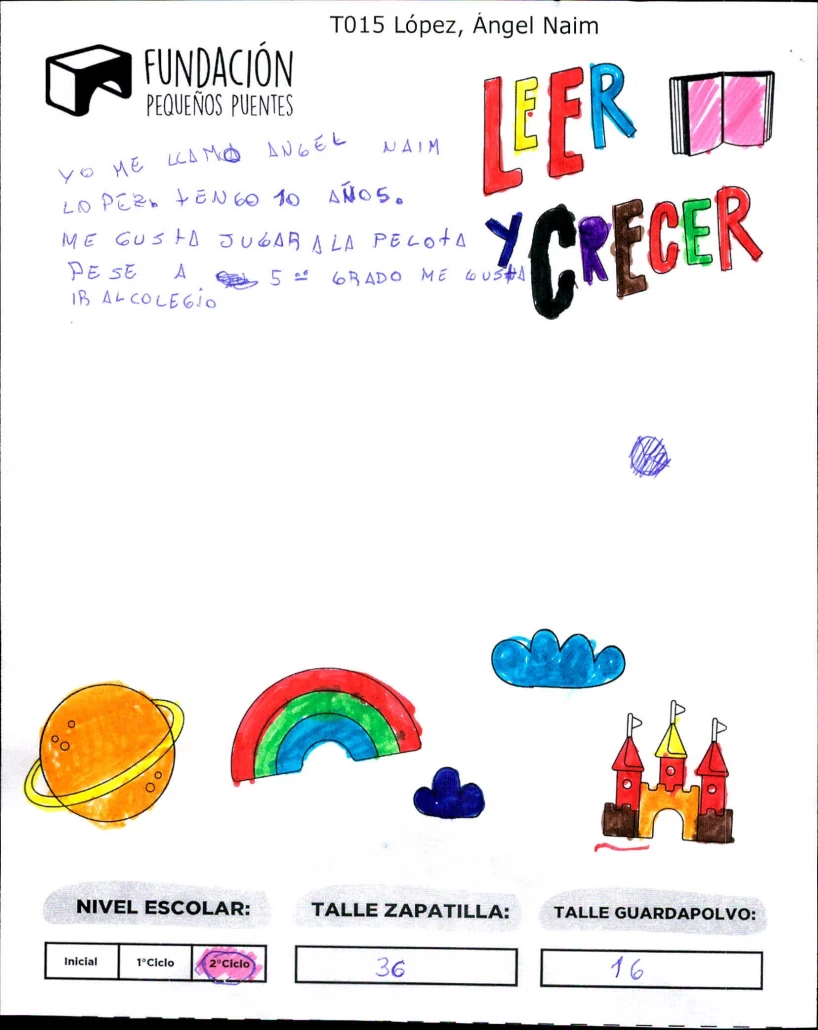 T015 López, Ángel Naim
FUNDACIÓN
PEQUEÑOS PUENTES
LEER
Y CRECER
YO ME LLAMO ANGEL NAIM
LOPEZ. tENGO 10 AÑOS.
ME GUStA JUGAR A LA PELOtA
PESE A 5 to GRADO ME GUStA
IR AL COLEGIO
NIVEL ESCOLAR:
TALLE ZAPATILLA:
TALLE GUARDAPOLVO:
Inicial 1°Ciclo 2°Ciclo
36
16